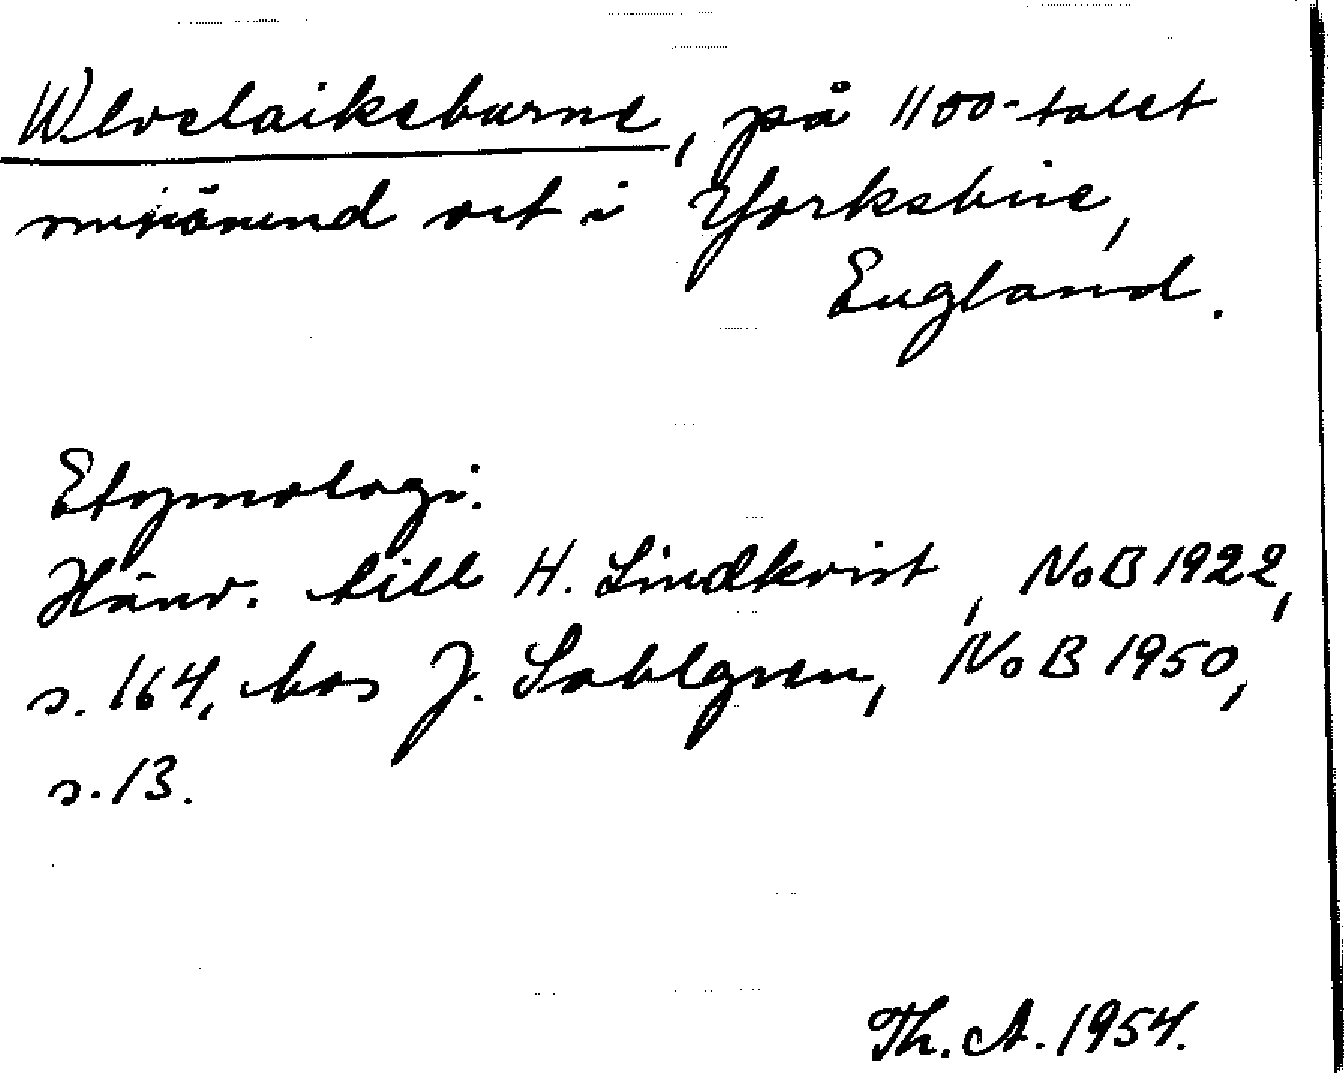 Wlvelaikeburne, på 1100-talet
omnämnd ort i Yorkshire,
England.
Etymologi.
Hänv. till H. Lindkvist, NoB 1922,
s. 164, hos J. Sahlgren, NoB 1950,
s. 13.
Th. A. 1954.